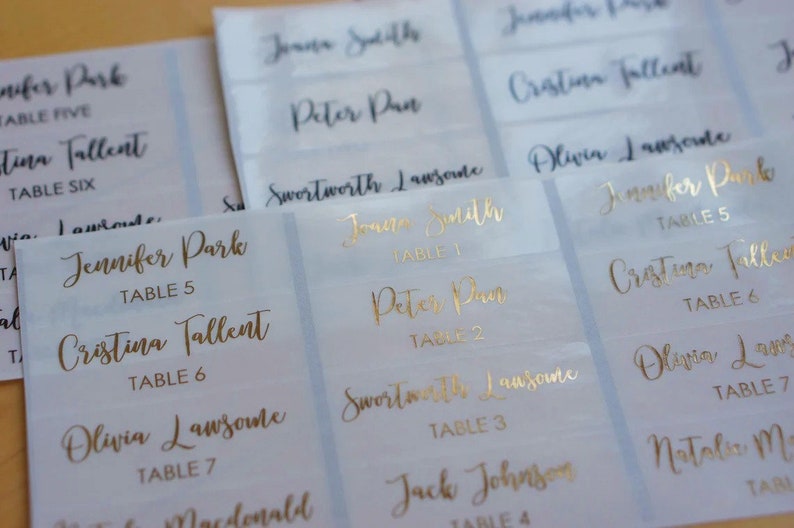 nnifer Park
TABLE FIVE
stina Tallent
TABLE SIX
Joana Smith
Peter Pan
Swortworth Lawsome
Jennifer Park
Cristina Tallent
Olivia Lawsome
Jennifer Park
TABLE 5
Cristina Tallent
TABLE 6
Olivia Lawsome
TABLE 7
Macdonald
Joana Smith
TABLE 1
Peter Pan
TABLE 2
Swortworth Lawsome
TABLE 3
Jack Johnson
TABLE 4
Jennifer Park
TABLE 5
Cristina Tallent
TABLE 6
Olivia Laws
TABLE 7
Natalie Ma
TABL